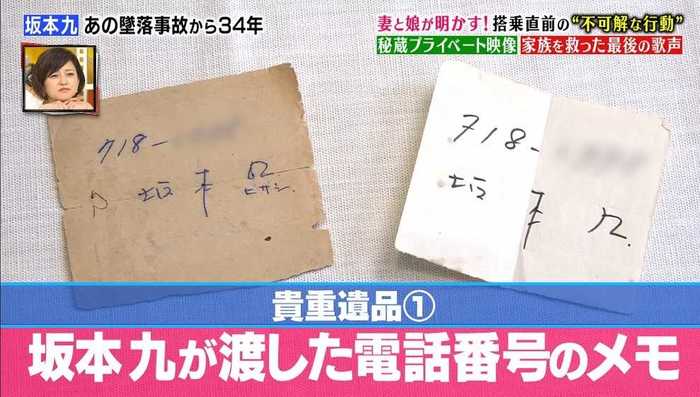 坂本九 あの墜落事故から34年
妻と娘が明かす!搭乗直前の“不可解な行動”
秘蔵プライベート映像 家族を救った最後の歌声
718-
坂本九
ヒサシ
718-
坂本九
貴重遺品①
坂本九が渡した電話番号のメモ